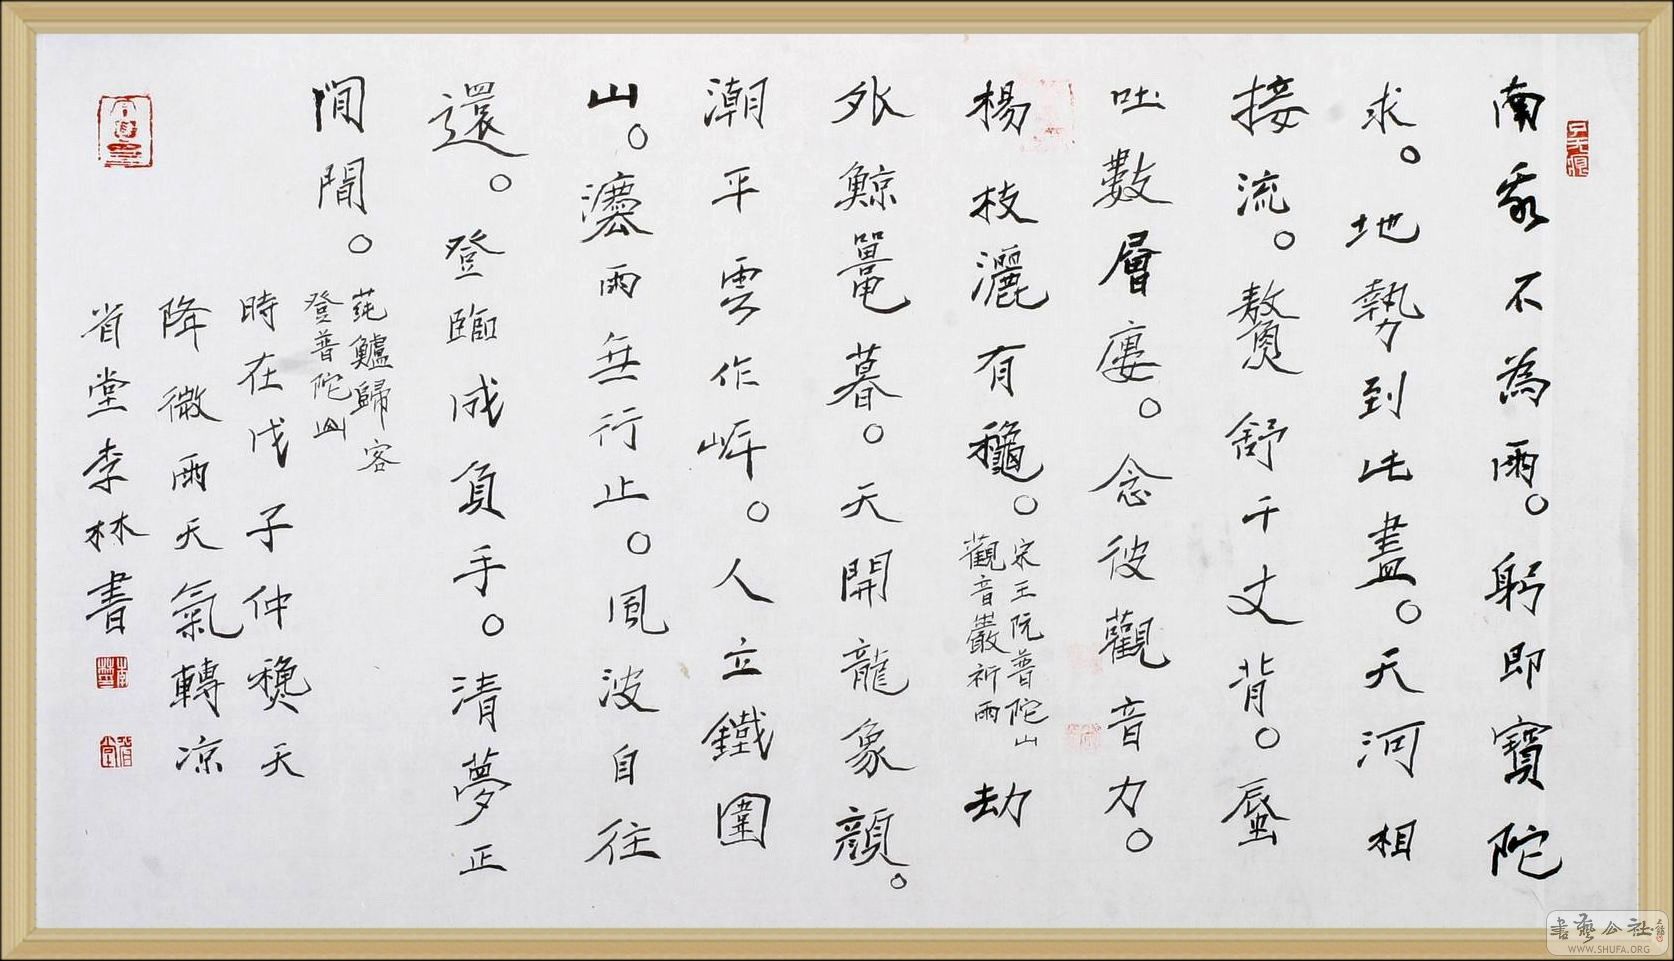 南來不為雨。躬即寶陀
求。地勢到此盡。天河相
接流。鰲舒千丈背。蜃
吐數層廔。念彼觀音力。
楊枝灑有龝。
宋王阮普陀山
觀音巖祈雨
劫
外鯨鼉暮。天開龍象顔。
潮平雲作岸。人立鐵圍
山。灋雨無行止。風波自往
還。登臨成負手。清夢正
閒閒。
蒓鱸歸客
登普陀山
時在戊子仲龝天
降微雨天氣轉凉
省堂李林書
省堂
書藝公社
WWW.SHUFA.ORG